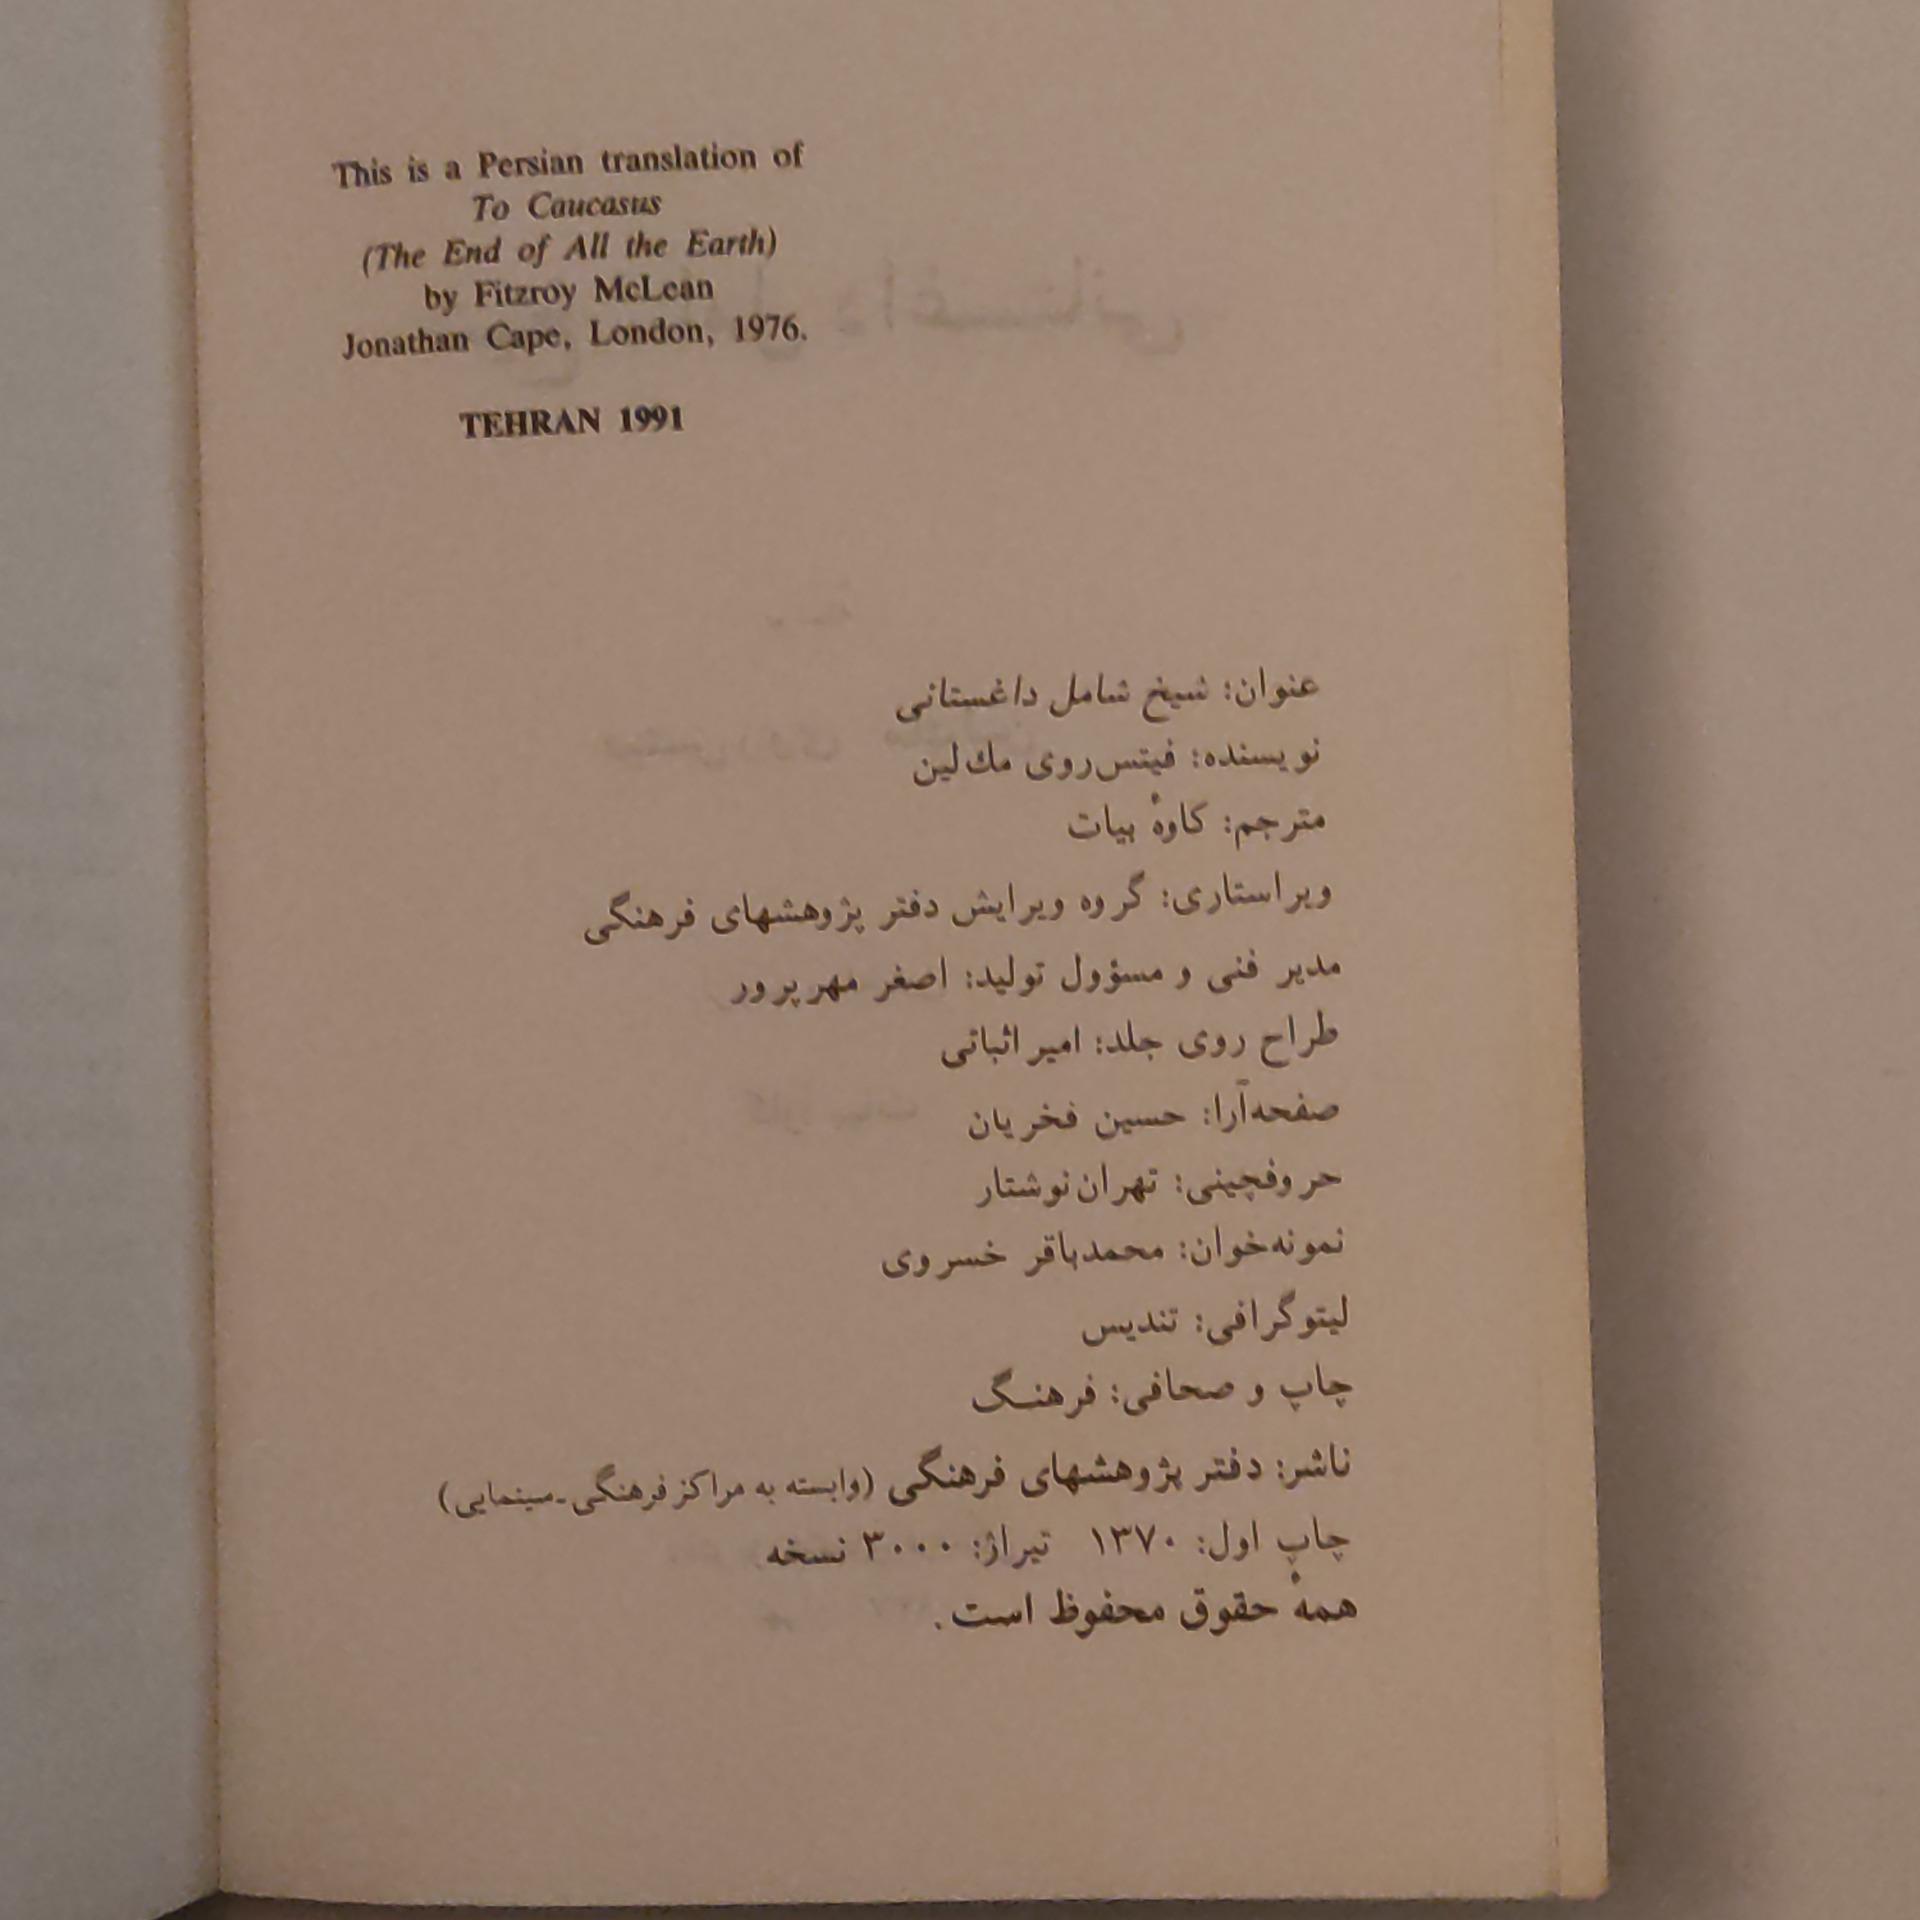 This is a Persian translation of
To Caucasus
(The End of All the Earth)
by Fitzroy McLean
Jonathan Cape, London, 1976.
TEHRAN 1991
عنوان: شیخ شامل داغستانی
نویسنده: فیتس‌روی مك‌لین
مترجم: کاوهٔ بیات
ویراستاری: گروه ویرایش دفتر پژوهشهای فرهنگی
مدیر فنی و مسؤول تولید: اصغر مهرپرور
طراح روی جلد: امیر اثباتی
صفحه‌آرا: حسین فخریان
حروفچینی: تهران‌نوشتار
نمونه‌خوان: محمدباقر خسروی
لیتوگرافی: تندیس
چاپ و صحافی: فرهنگ
ناشر: دفتر پژوهشهای فرهنگی (وابسته به مراکز فرهنگی-سینمایی)
چاپ اول: ۱۳۷۰ تیراژ: ۳۰۰۰ نسخه
همهٔ حقوق محفوظ است.